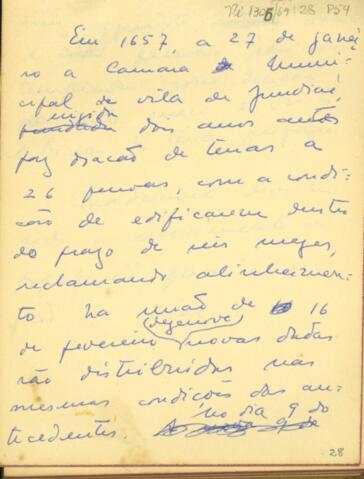 Pi 1305/69: 28 P59
Em 1657, a 27 de janei
ro a Camara Muni
cipal de vila de Jundiaí,
erigida
fundada dois anos antes
faz doação de terras a
26 pessoas, com a condi-
ção de edificarem dentro
do prazo de seis meses,
reclamando alinhamen-
to. Na reunião de 16
de fevereiro (dezenove) novas dadas
são distribuidas nas
mesmas condições das an-
tecedentes. no dia 9 do
28